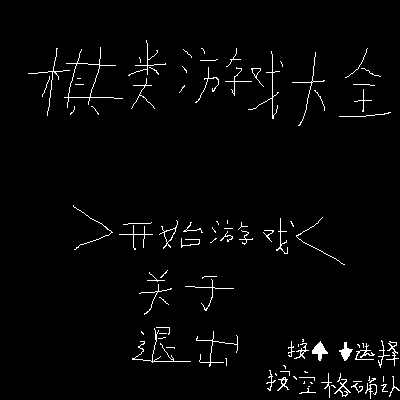 棋类游戏大全
>开始游戏<
关于
退出
按↑↓选择
按空格确认